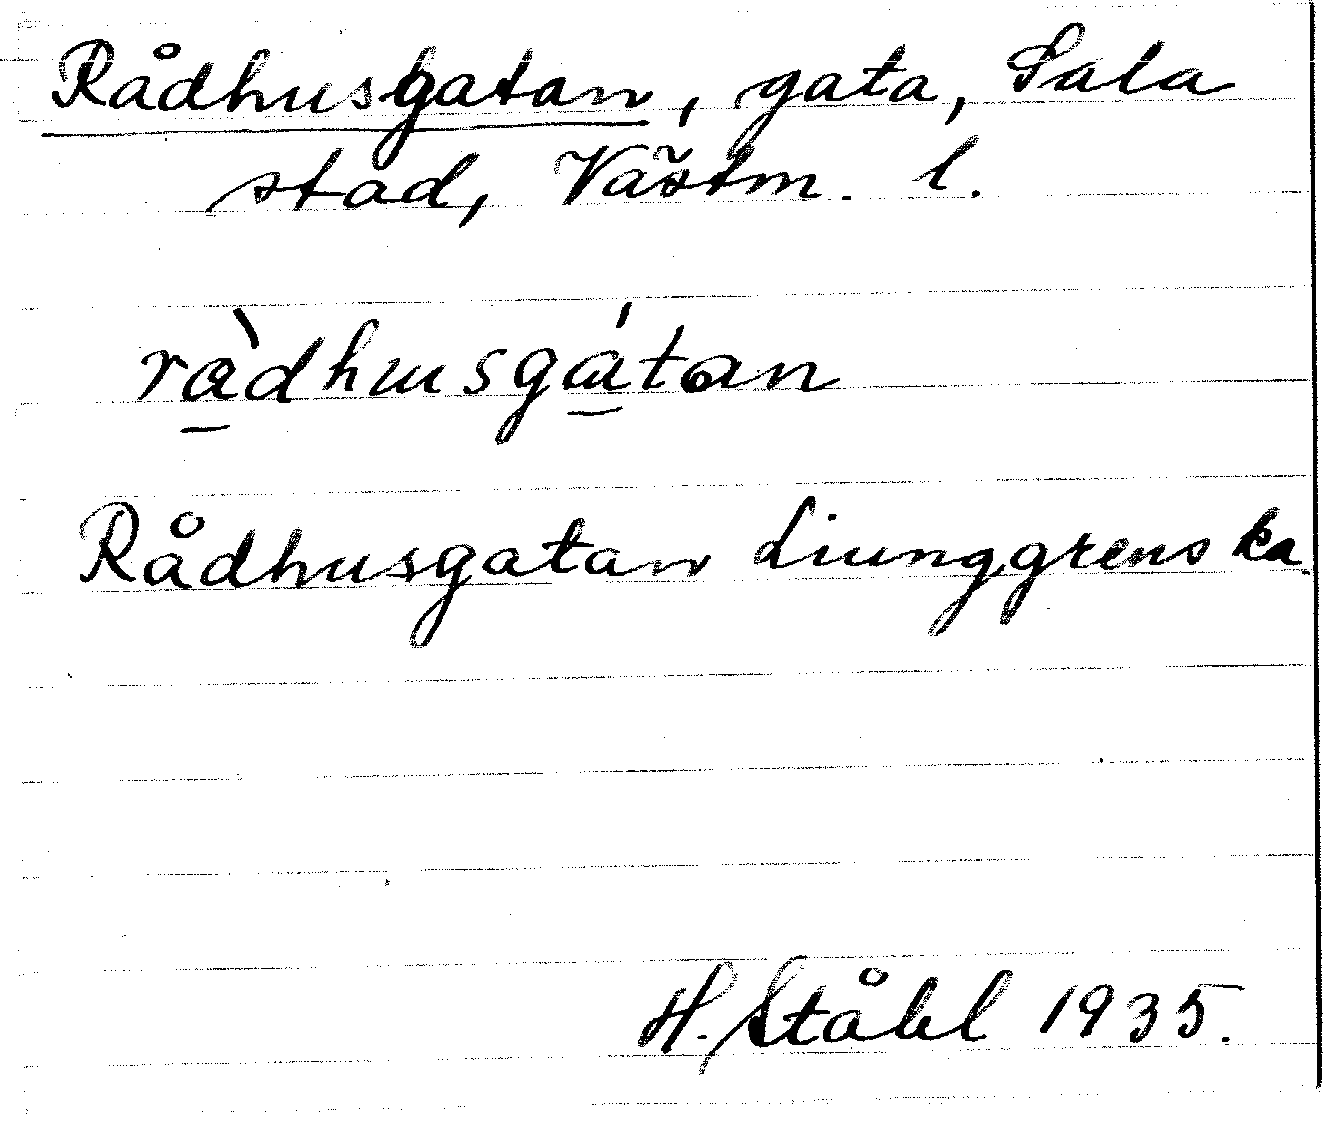 Rådhusgatan, gata, Sala
stad, Västm. l.
rὰdhusgátan
Rådhusgatan Liunggrens ka.
H. Ståhl 1935.